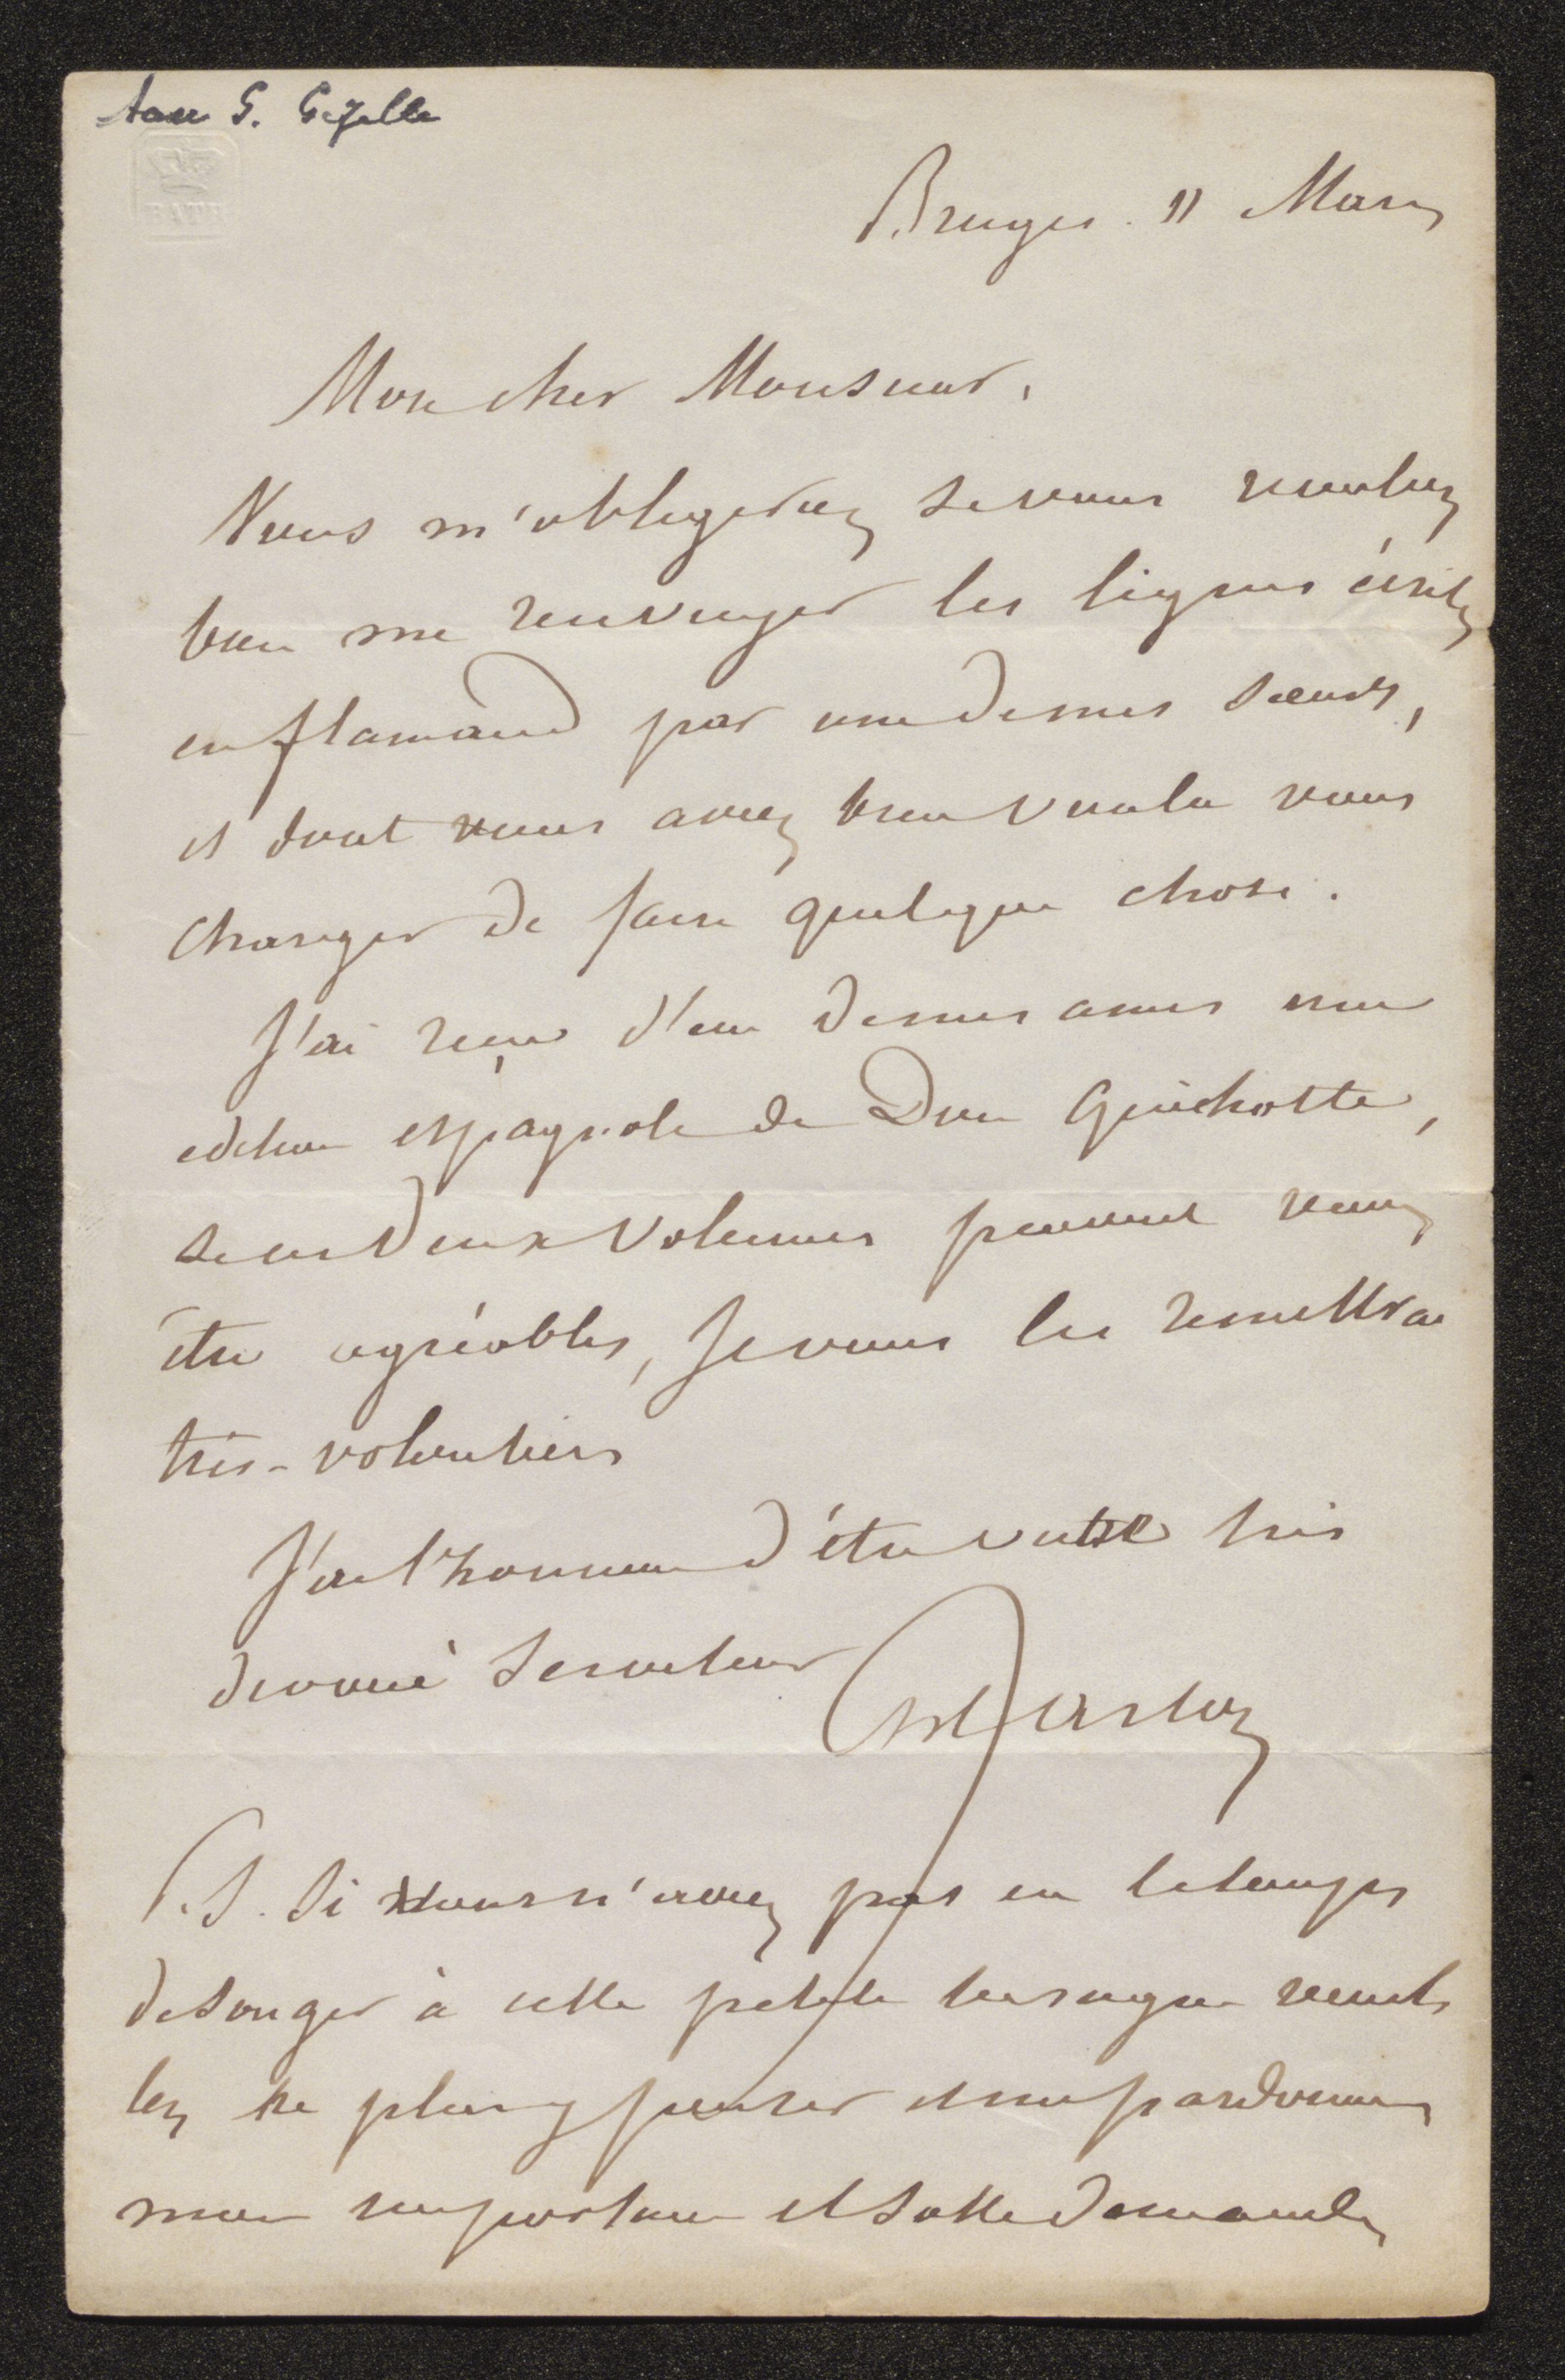 Aan G. Gezelle
BATH
Bruges. 11 Mars
Mon cher Monsieur,
Vous m'obligeriez si vous vouliez
bien me renvoyer les lignes écrites
en flamand par une de mes sœurs,
et dont vous avez bien voulu vous
charger de faire quelque chose.
J'ai reçu d'un de mes amis une
edition espagnole de Don Quichotte,
si ces deux volumes peuvent vous
être agréables, je vous les remettrai
très-volontiers
J'ai l'honneur d'être votre très
devoué serviteur
P.S. Si vous n'avez pas eu le temps
de songer à cette petite besogne veuil
lez ne plus y penser et me pardonner
mon importune et sotte demande